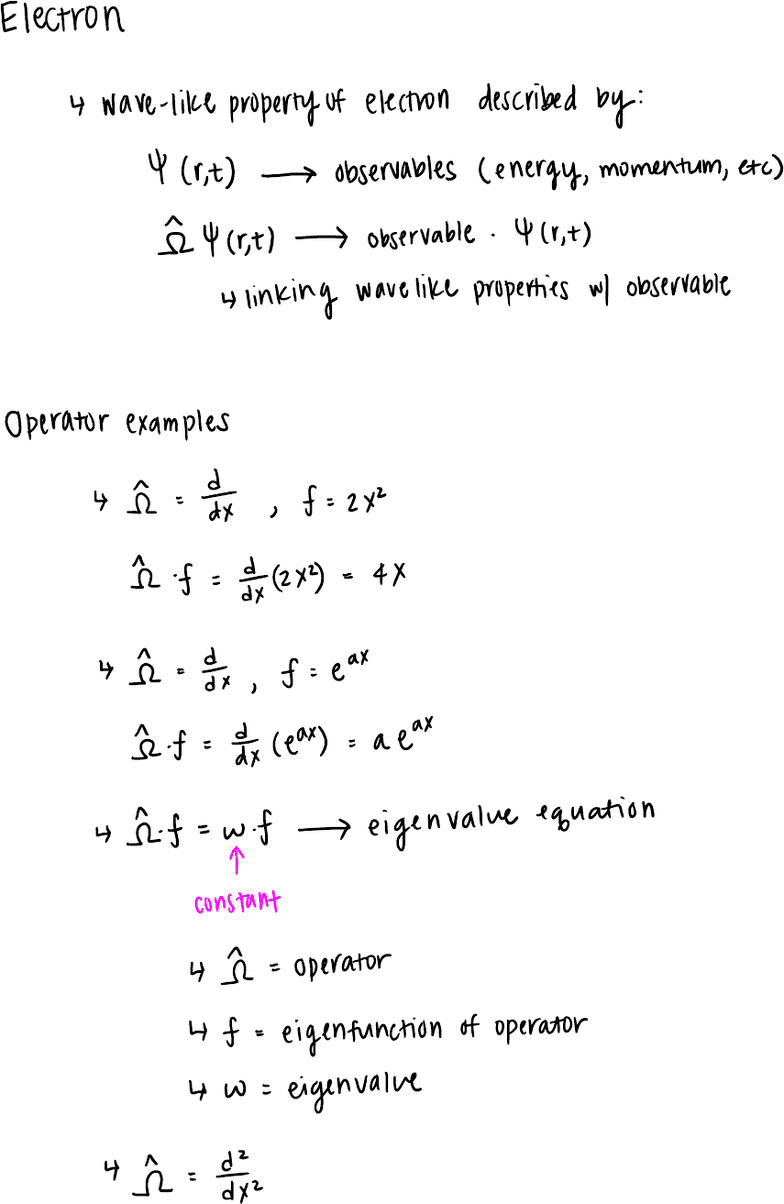 Electron
↳ wave-like property of electron described by:
Ψ(r,t) ⟶ observables (energy, momentum, etc)
Ω̂ Ψ(r,t) ⟶ observable · Ψ(r,t)
↳ linking wavelike properties w/ observable
Operator examples
↳ Ω̂ = d/dx , f = 2x²
Ω̂ · f = d/dx (2x²) = 4x
↳ Ω̂ = d/dx , f = e^{ax}
Ω̂ · f = d/dx (e^{ax}) = a e^{ax}
↳ Ω̂ · f = w · f ⟶ eigenvalue equation
↑
constant
↳ Ω̂ = operator
↳ f = eigenfunction of operator
↳ w = eigenvalue
↳ Ω̂ = d²/dx²